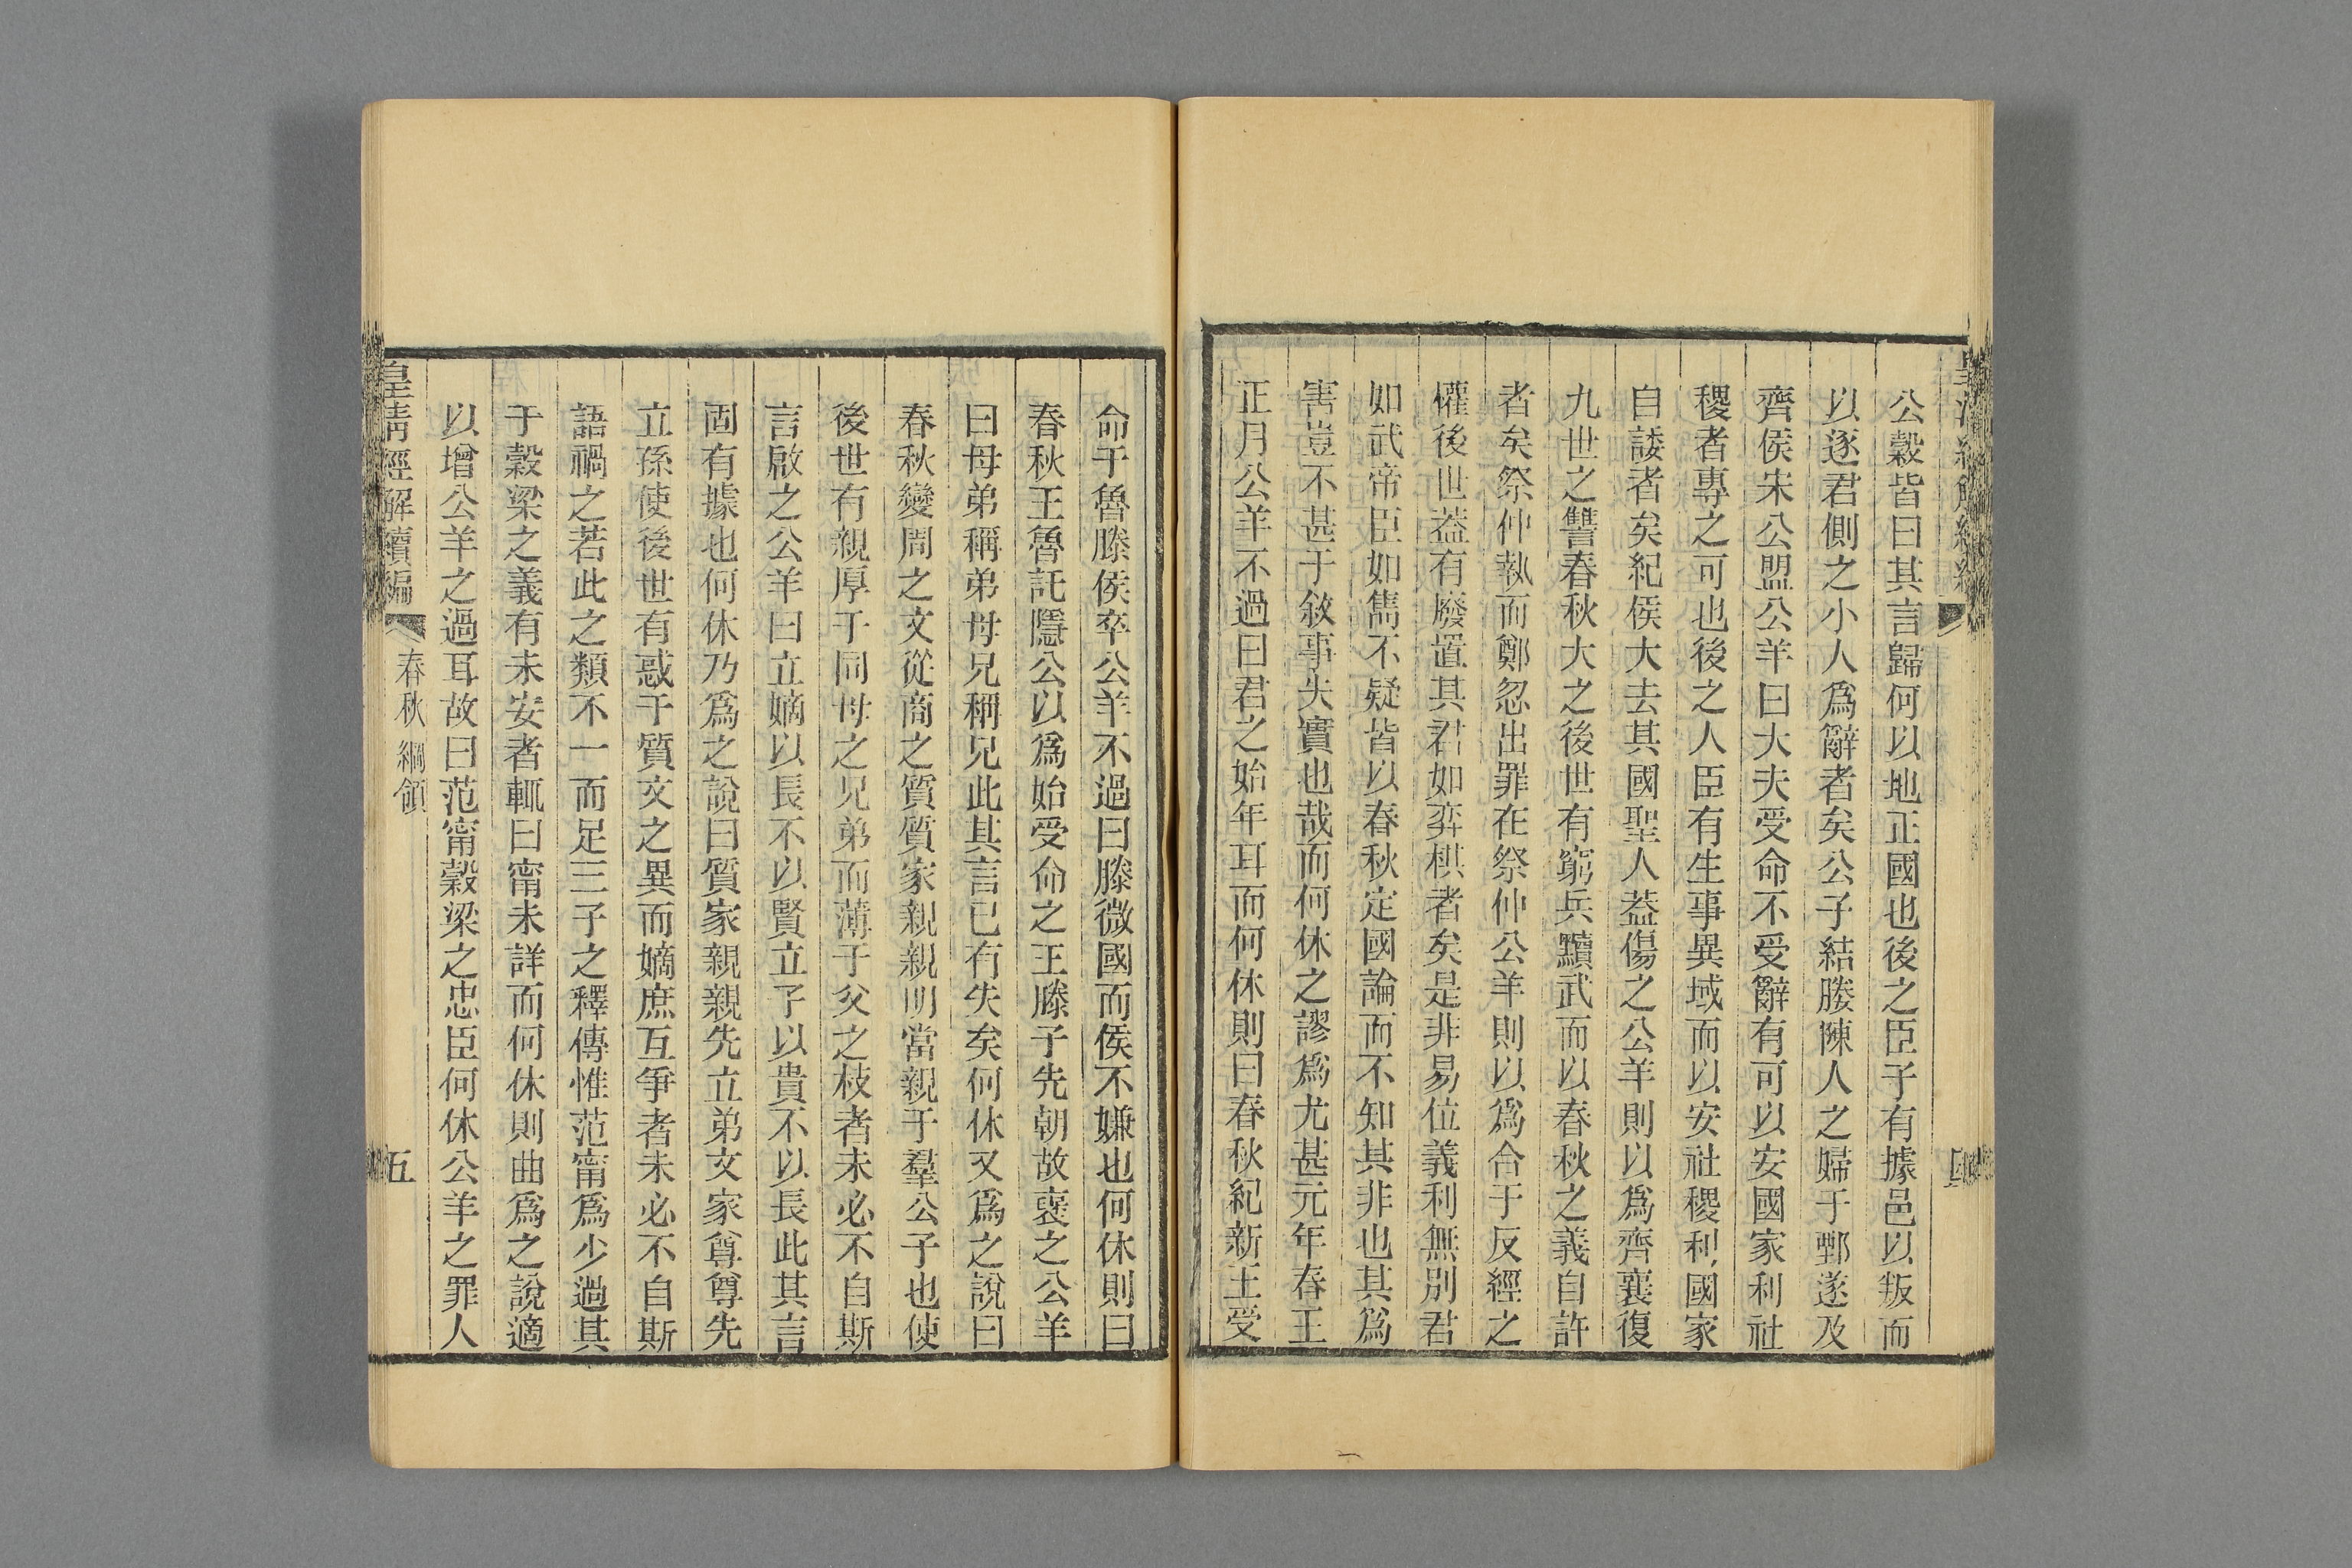 公穀皆曰其言歸何以地正國也後之臣子有據邑以叛而
以逐君側之小人爲辭者矣公子結媵陳人之婦于鄄遂及
齊侯宋公盟公羊曰大夫受命不受辭有可以安國家利社
稷者專之可也後之人臣有生事異域而以安社稷利國家
自諉者矣紀侯大去其國聖人葢傷之公羊則以爲齊襄復
九世之讐春秋大之後世有窮兵黷武而以春秋之義自許
者矣祭仲執而鄭忽出罪在祭仲公羊則以爲合于反經之
權後世葢有廢置其君如弈棋者矣是非易位義利無別君
如武帝臣如雋不疑皆以春秋定國論而不知其非也其爲
害豈不甚于敘事失實也哉而何休之謬爲尤甚元年春王
正月公羊不過曰君之始年耳而何休則曰春秋紀新王受
命于魯滕侯卒公羊不過曰滕微國而侯不嫌也何休則曰
春秋王魯託隱公以爲始受命之王滕子先朝故襃之公羊
曰母弟稱弟母兄稱兄此其言已有失矣何休又爲之說曰
春秋變周之文從商之質質家親親明當親于羣公子也使
後世有親厚于同母之兄弟而薄于父之枝者未必不自斯
言啟之公羊曰立嫡以長不以賢立子以貴不以長此其言
固有據也何休乃爲之說曰質家親親先立弟文家尊尊先
立孫使後世有惑于質文之異而嫡庶互爭者未必不自斯
語禍之若此之類不一而足三子之釋傳惟范甯爲少過其
于穀梁之義有未安者輒曰甯未詳而何休則曲爲之說適
以增公羊之過耳故曰范甯穀梁之忠臣何休公羊之罪人
皇清經解續編
春秋綱領
五